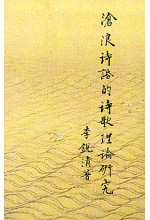 滄浪詩話的詩歌理論研究
李銳清著